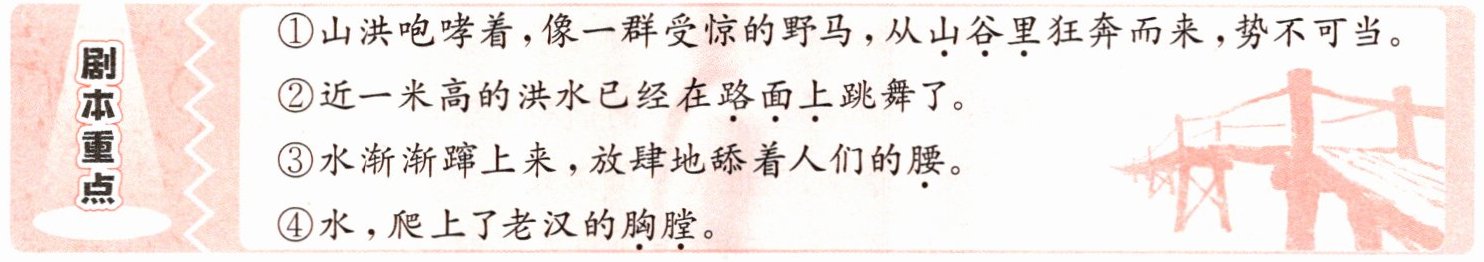 剧本重点
①山洪咆哮着，像一群受惊的野马，从山谷里狂奔而来，势不可当。
②近一米高的洪水已经在路面上跳舞了。
③水渐渐蹿上来，放肆地舔着人们的腰。
④水，爬上了老汉的胸膛。